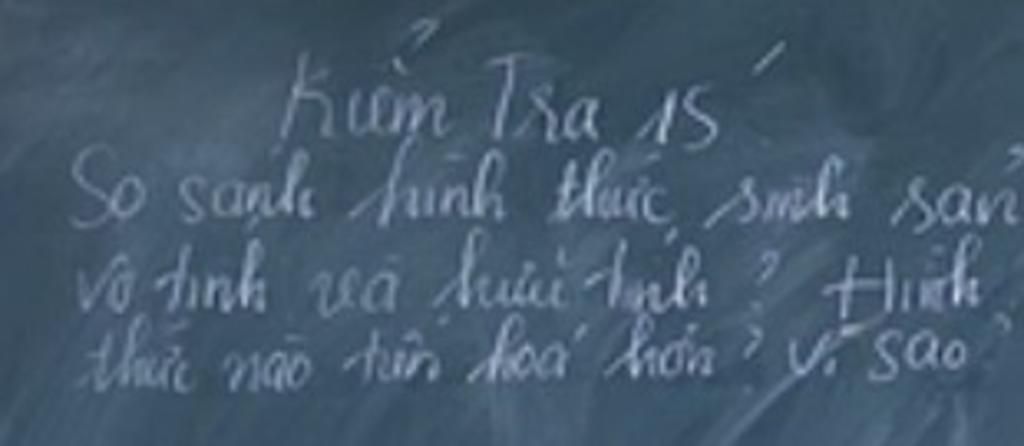 Kiểm Tra 15'
So sánh hình thức sinh sản
vô tính và hữu tính? Hình
thức nào tiến hoá hơn? Vì sao?